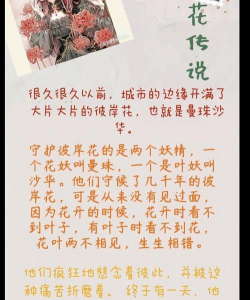 花传说
很久很久以前，城市的边缘开满了
大片大片的彼岸花，也就是曼珠沙
华。
守护彼岸花的是两个妖精，一
个花妖叫曼珠，一个是叶妖叫
沙华。他们守候了几千年的彼
岸花，可是从来没有见过面，
因为花开的时候，花开时看不
到叶子，有叶子时看不到花，
花叶两不相见，生生相错。
他们疯狂地想念着彼此，并被这
种痛苦折磨着。 终于有一天，他